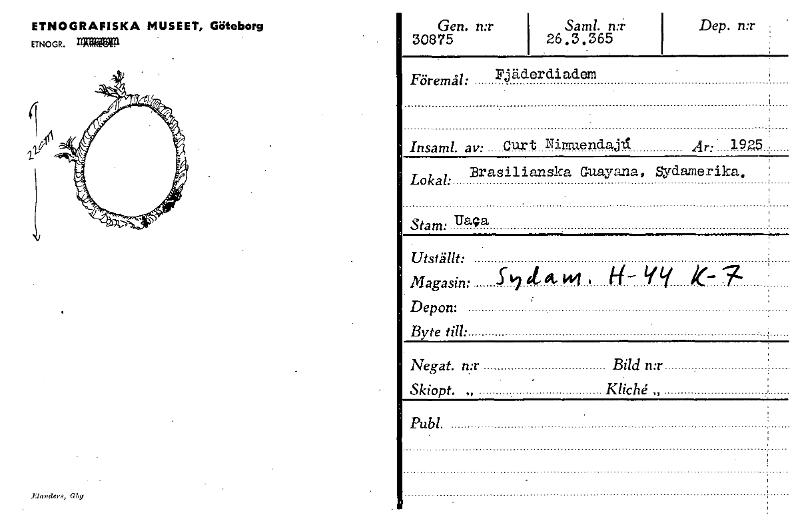 ETNOGRAFISKA MUSEET, Göteborg
ETNOGR.
22cm
Elanders, Gbg
Gen. n:r Saml. n:r Dep. n:r
30875 26.3.365
Föremål: Fjäderdiadem
Insaml. av: Curt Nimuendajú År: 1925
Lokal: Brasilianska Guayana, Sydamerika.
Stam: Uaça
Utställt:
Magasin: Sydam. H-44 K-7
Depon:
Byte till:
Negat. n:r Bild n:r
Skiopt. „ Kliché „
Publ.